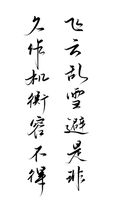 飞云乱雪避是非
久作机衡容不得